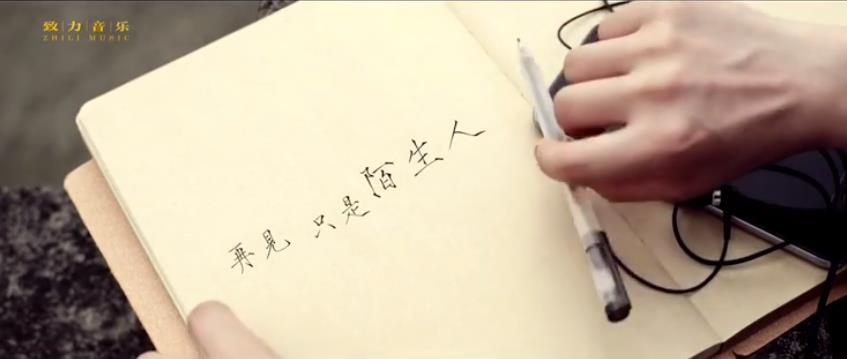 致力音乐
ZHILI MUSIC
再见 只是陌生人